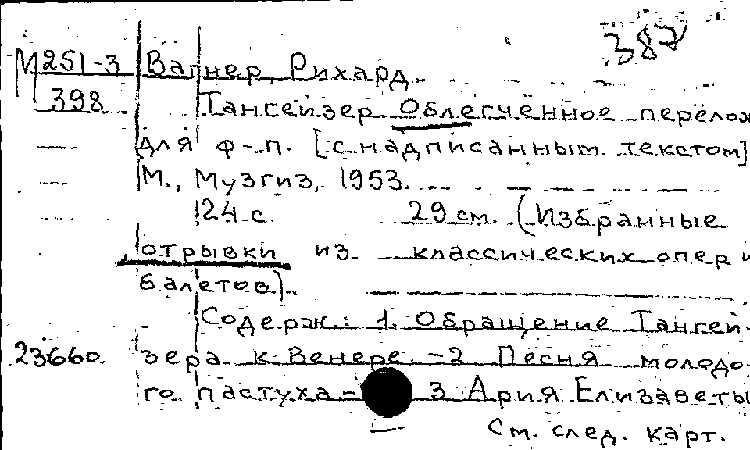 387
М251-3 Вагнер, Рихард.
398 Тангейзер. Облегчённое перелож
для ф-п. [с надписанным текстом]
М., Музгиз, 1953.
24 с. 29 см. (Избранные
отрывки из классических опер и
балетов).
Содерж.: 1. Обращение Тангей-
23660 зера к Венере. -2 Песня молодо-
го пастуха - 3 Ария Елизаветы
См. след. карт.